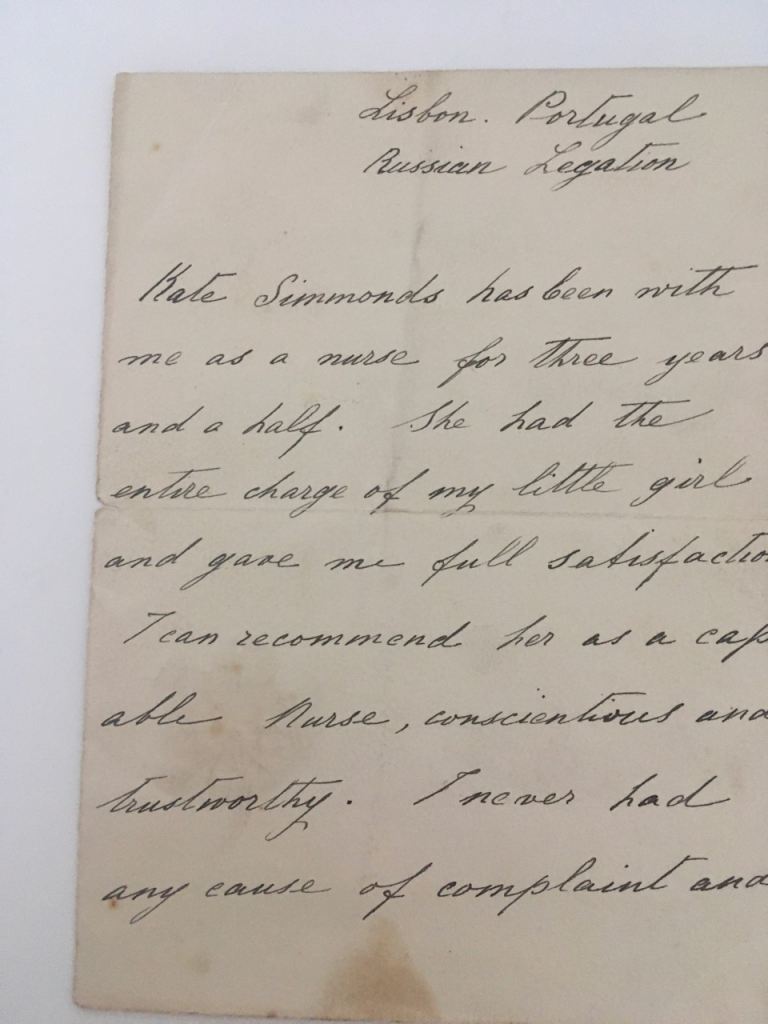 Lisbon. Portugal
Russian Legation
Kate Simmonds has been with
me as a nurse for three years
and a half. She had the
entire charge of my little girl
and gave me full satisfactio
I can recommend her as a cap
able Nurse, conscientious and
trustworthy. I never had
any cause of complaint and